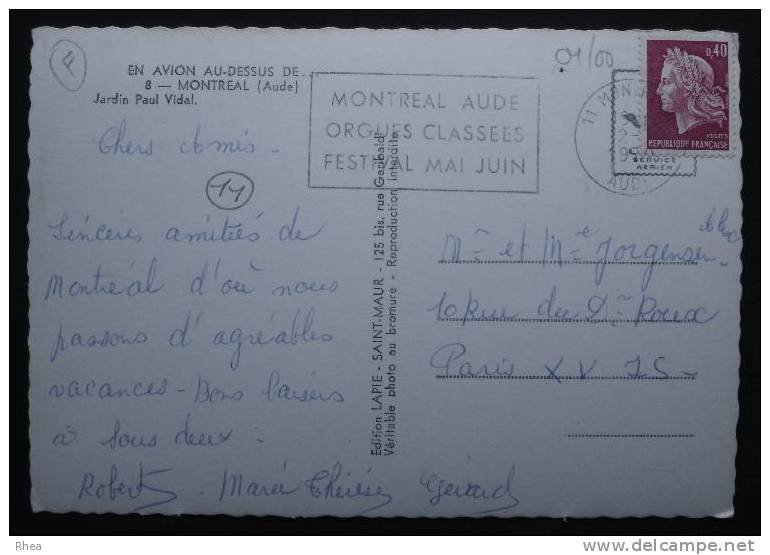 F
EN AVION AU-DESSUS DE...
8 — MONTREAL (Aude)
Jardin Paul Vidal.
MONTREAL AUDE
ORGUES CLASSEES
FESTIVAL MAI JUIN
01/00
0,40
POSTES
REPUBLIQUE FRANÇAISE
11 MON
AUDE
SERVICE
AERIEN
Chers amis.
11
Sincères amitiés de
Montréal d'où nous
passons d'agréables
vacances - Bons baisers
à tous deux.
Robert. Marie Thérèse Gérard
Edition LAPIE - SAINT-MAUR - 125 bis, rue Garibaldi
Véritable photo au bromure - Reproduction interdite
Mr et Mme Jorgensen
10 Rue du Dr Roux
Paris XV 75 -
Rhea
delcampe.net